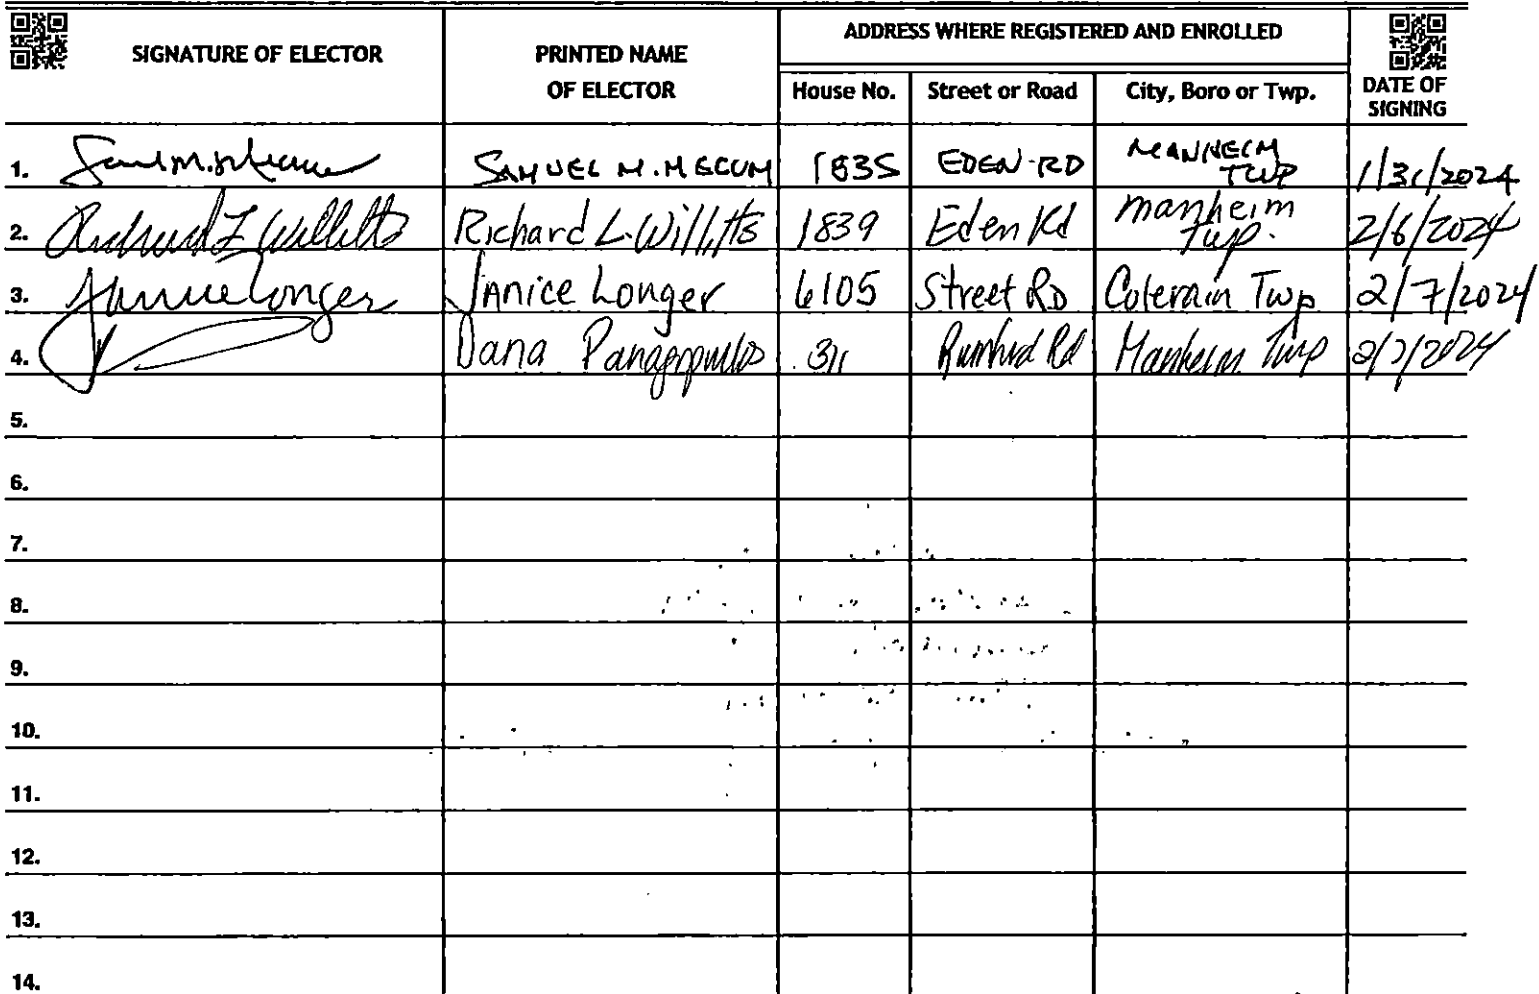 SIGNATURE OF ELECTOR
PRINTED NAME
OF ELECTOR
ADDRESS WHERE REGISTERED AND ENROLLED
House No.
Street or Road
City, Boro or Twp.
DATE OF
SIGNING
1. SAMUEL M. MECUM 1835 EDEN RD MANHEIM
TWP 1/31/2024
2. Richard L. Willitts Richard L. Willitts 1839 Eden Rd Manheim
Twp. 2/6/2024
3. Janice Longer Janice Longer 6105 Street RD Colerain Twp 2/7/2024
4. Dana 311 Rd Manheim Twp 2/7/2024
5.
6.
7.
8.
9.
10.
11.
12.
13.
14.